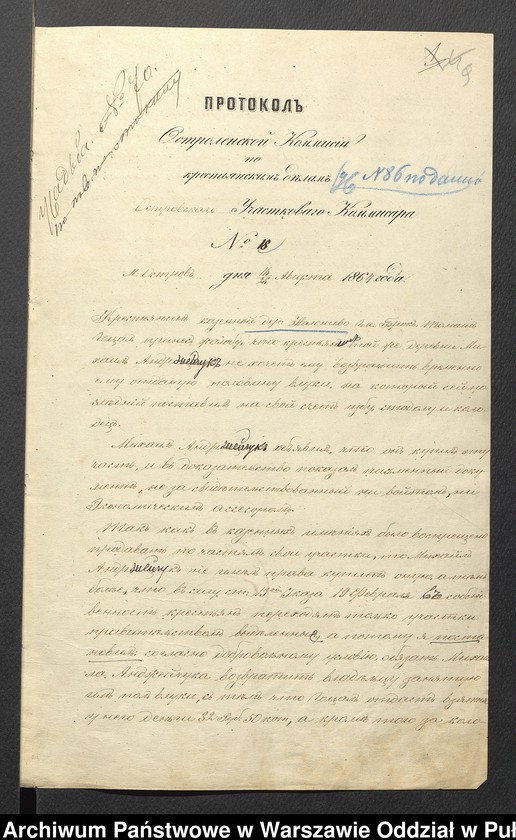 Жалоба. № 40.
по
ПРОТОКОЛЪ
Остроленской Коммисіи
по
крестьянскимъ дѣламъ № 86 подати
Островского Участковаго Коммисара
№ 18
М. Островъ дня 16/28 Августа 1864 года
Крестьянинъ казенной дер. Гм.
принесъ жалобу, что крестьянинъ той же деревни Ми-
хаилъ Андржейчукъ не хочетъ ему возвратить временно
ему отданую половину влуки, на которой сей по-
слѣдній поставилъ на свой счетъ избу, стодолу и коло-
дец.
Михаилъ Андржейчукъ объявилъ, что онъ купилъ эту
часть, и въ доказательство показалъ письменный доку-
ментъ, не засвидѣтельствованный ни войтомъ, ни
Экономическимъ ассесоромъ.
Такъ какъ въ казенныхъ имѣніяхъ было воспрещено
продавать по частямъ свои участки, то Михаилъ
Андржейчукъ не имѣлъ права купить оную, а тѣмъ
болѣе, что въ силу ст. Указа 19 Февраля въ собст
венность крестьянъ переходятъ только участки
правительствомъ надѣленные, а потому я поста-
новилъ: согласно добровольному условію, обязать Михаи-
ла Андржейчука возвратить владѣльцу занятую
имъ пол влуки, съ тѣмъ что Гоцалъ отдастъ взятыя
у него деньги 32 Руб. 50 коп., а кромѣ того за коло-
Archiwum Państwowe w Warszawie Oddział w Puł